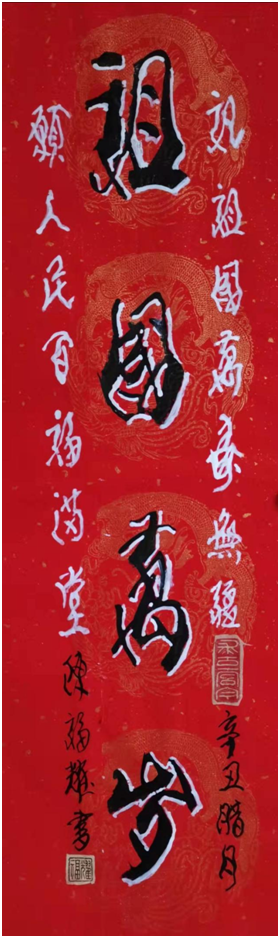 祝祖國萬寿無疆
辛丑腊月
祖國萬岁
願人民百福满堂
陳福耀書